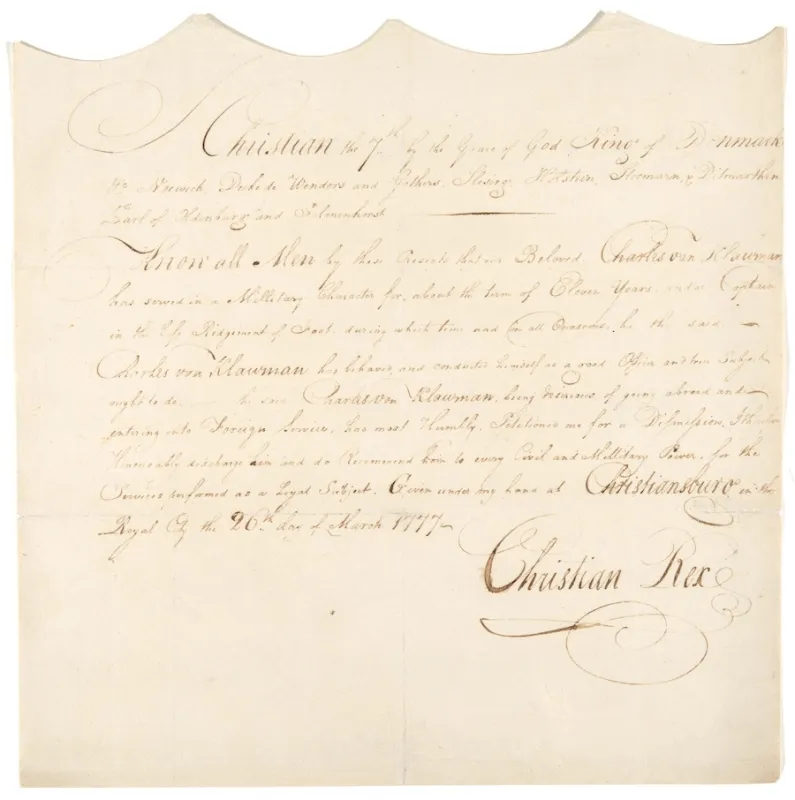 Christian the 7th by the Grace of God King of Denmark
Norwich, Duke de Wendors and Gothers, Slesing, Holstein, Stormarn, & Ditmarthen
Earl of Oldenburg and Delmenhorst
Know all Men by these Presents that our Beloved Charles von Klawman
has served in a Millitary Character for about the term of Eleven Years, under Captain
in the Ridgement of Foot, during which time and on all Occasions, he the said
Charles von Klawman has behaved and conducted himself as a good Officer and true Subject
ought to do. he said Charles von Klawman, being desireous of going abroad and
entering into Foreign Service, has most Humbly Petitioned me for a Dismission, I
Honourably discharge him and do Recommend him to every Civil and Millitary Power, for the
Services performed as a Loyal Subject. Given under my hand at Christiansburg, in the
Royal City the 26th day of March 1777
Christian Rex